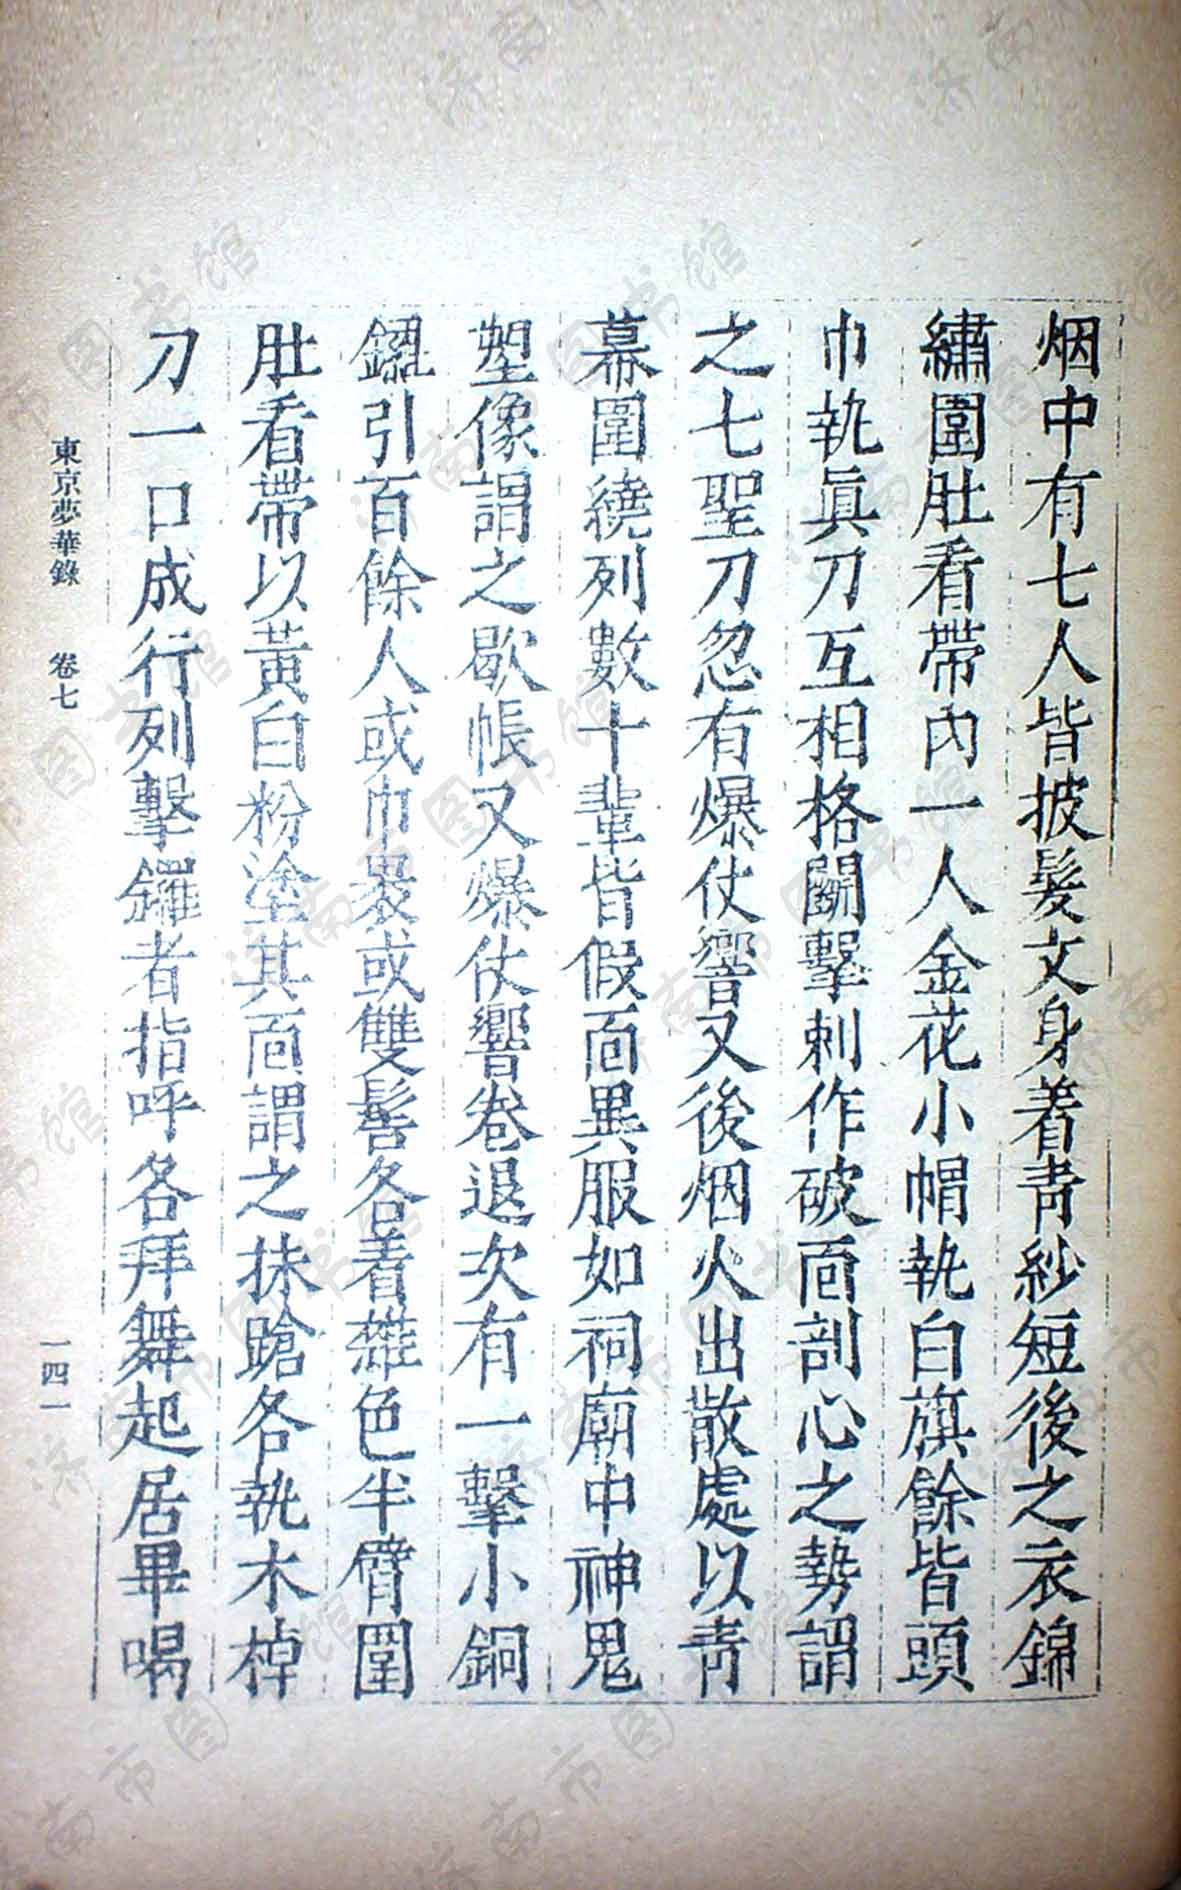 烟中有七人皆披髮文身着青紗短後之衣錦
繡圍肚看帶内一人金花小帽執白旗餘皆頭
巾執真刀互相格鬭擊刺作破面剖心之勢謂
之七聖刀忽有爆仗響又後烟火出散處以青
幕圍繞列數十輩皆假面異服如祠廟中神鬼
塑像謂之歇帳又爆仗響卷退次有一擊小銅
鑼引百餘人或巾裹或雙髻各着雜色半臂圍
肚看帶以黄白粉塗其面謂之抹蹌各執木棹
刀一口成行列擊鑼者指呼各拜舞起居畢喝
東京夢華錄 卷七
一四一
济南市图书馆